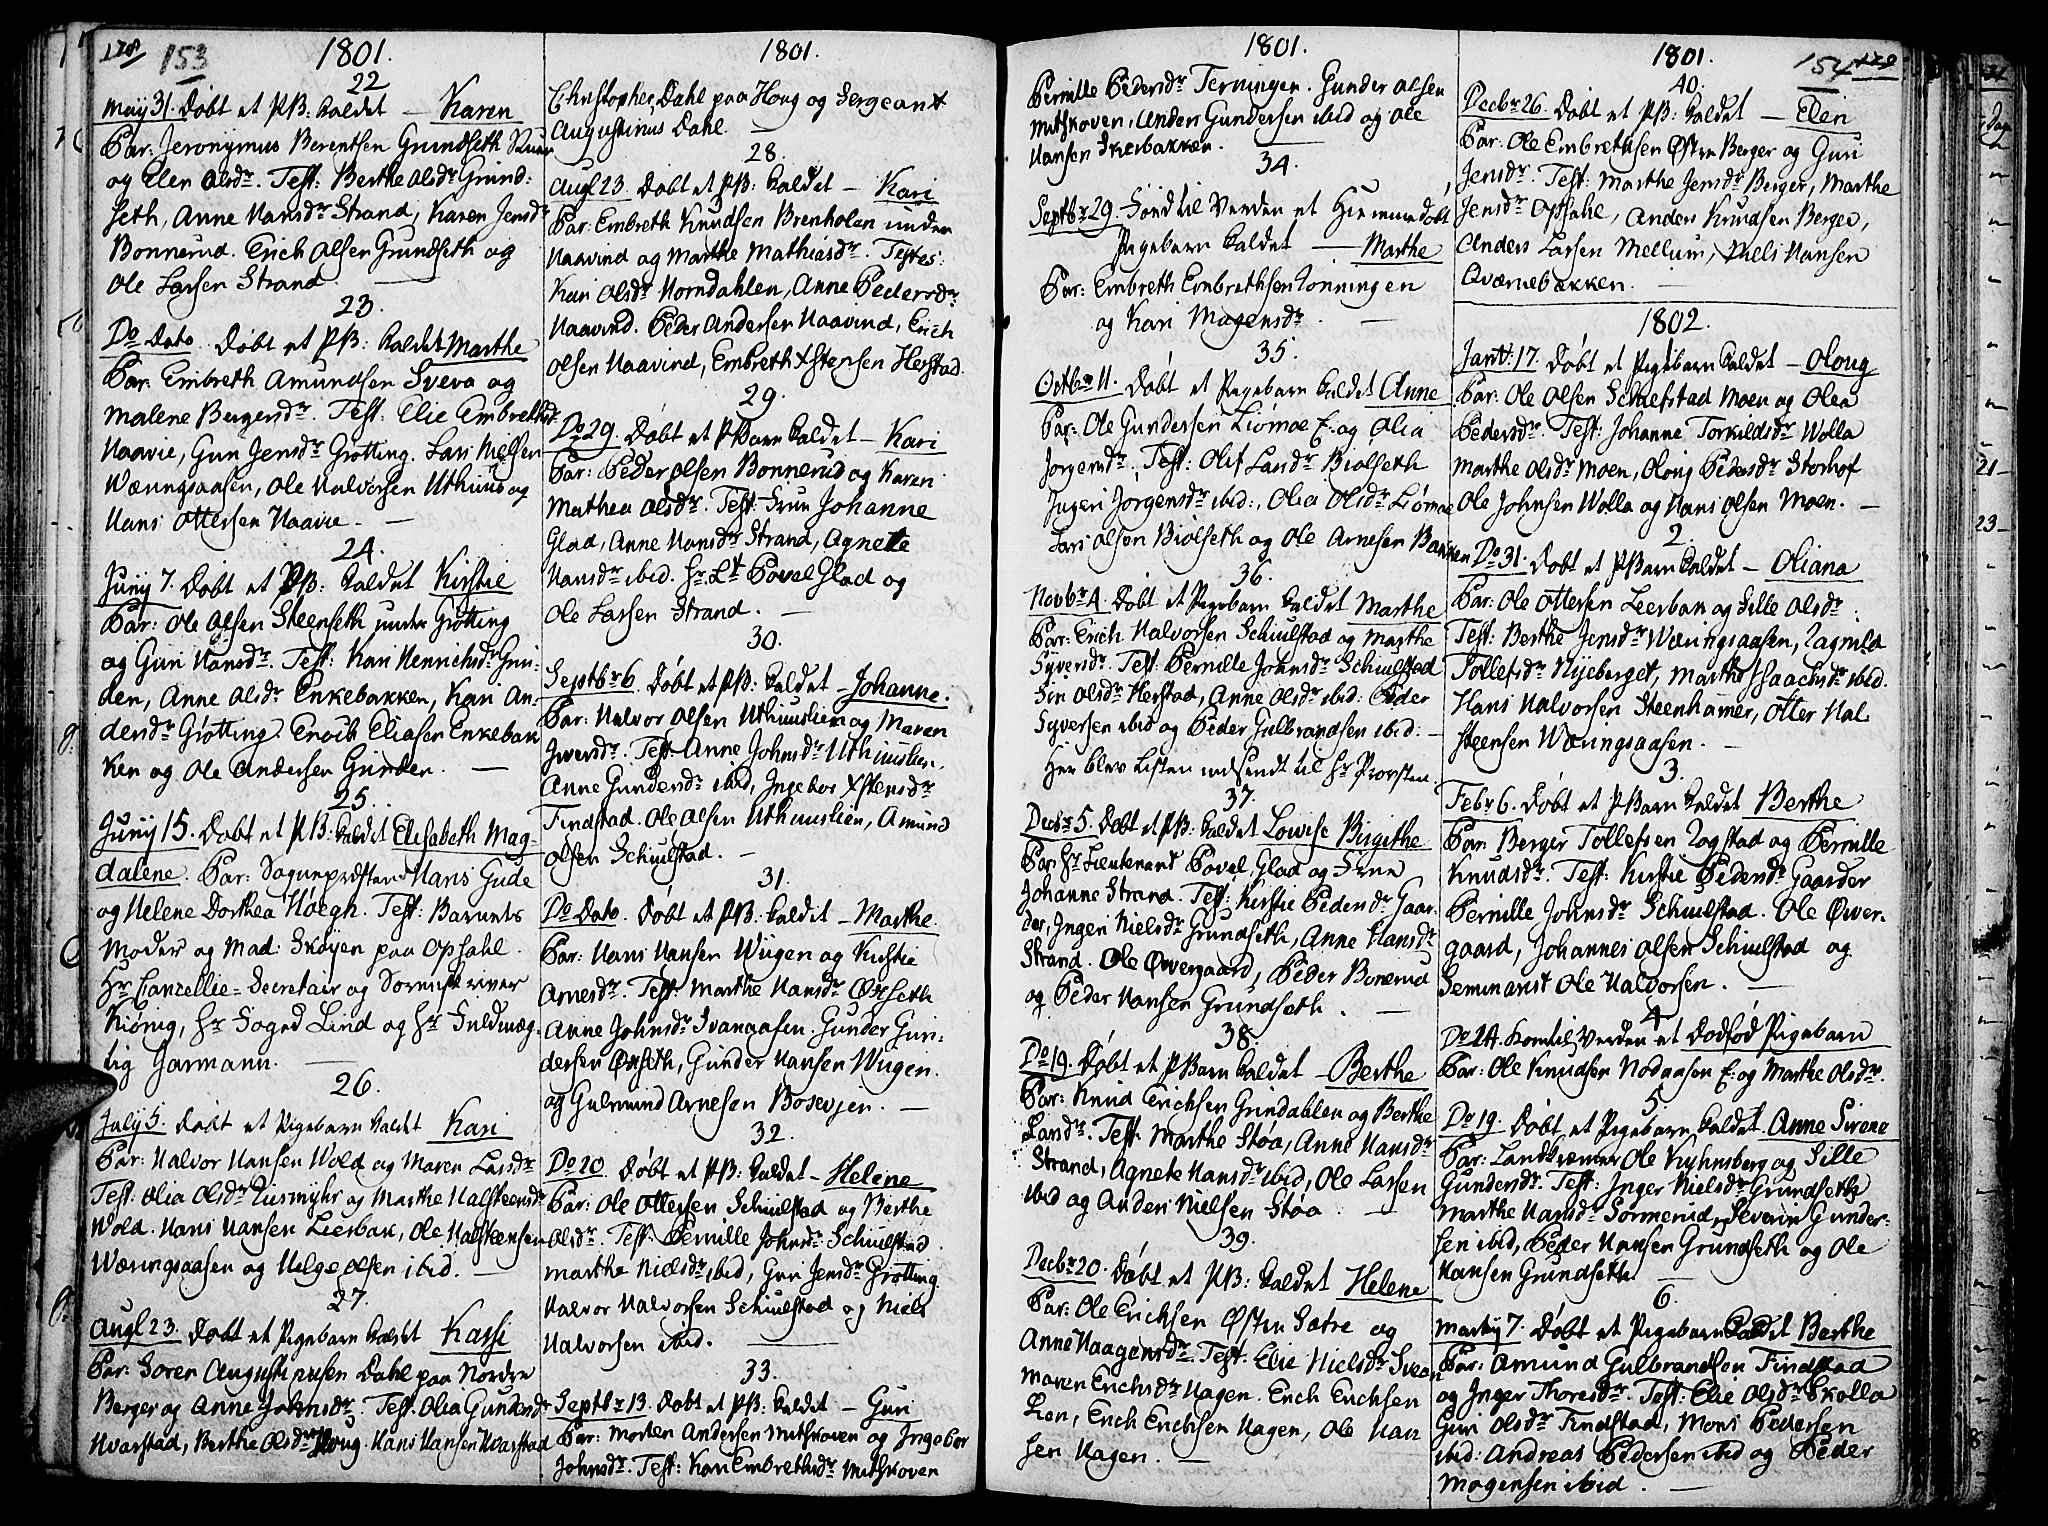 178 153
1801.
22
Maij 31. Døbt et P.B: kaldet — Karen
Par: Jeronymus Berentsen Grundseth
og Elen Olsdr. Test: Berthe Olsdr Grund:
seth, Anne Hansdr Strand, Karen Jensdr
Bonnerud. Erich Olsen Grundseth og
Ole Larsen Strand.
23.
Do Dato. Døbt et P.B: kaldet Marthe
Par: Embreth Amundsen Sveva og
Malene Bergersdr. Test: Elie Embrethsdr
Naavie, Guri Jensdr Grøtting. Lars Nielsen
Wæringsaasen, Ole Halvorsen Uthuus og
Hans Ottersen Naavie. —
24.
Junij 7. Døbt et P.B: kaldet Kirstie
Par: Ole Olsen Steenseth under Grøtting
og Guri Hansdr. Test: Kari Henrichsdr Grin-
den, Anne Olsdr Enkebakken, Kari An-
dersdr Grøtting. Enoch Eliasen Enkebak
ken og Ole Andersen Grinder. —
25.
Junij 15. Døbt et P.B: kaldet Elisabeth Mag-
dalene. Par: Sognepræsten Hans Gude
og Helene Dorthea Høegh. Test: Barnets
Moder og Mad: Skøyen paa Opsahl.
Hr Cancellie-Secretair og Sorenskriver
Kiønig, Hr Foged Lind og Hr Fuldmæg-
tig Garmann. —
26.
July 5. Døbt et Pigebarn kaldet Kari
Par: Halvor Hansen Wold og Maren Larsdr
Test: Olia Olsdr Riismyhr og Marthe Halsteensdr
Wold. Hans Hansen Leerbak, Ole Halsteensen
Wæringsaasen og Helge Olsen ibid. —
27.
Augl 23. Døbt et Pigebarn kaldet Kassi
Par: Søren Augustinusen Dahl paa Nordre
Berger og Anne Johnsdr. Test. Olia Gundersdr
Hvarstad, Berthe Olsdr Houg. Hans Hansen Hvarstad
1801.
Christopher Dahl paa Houg og Sergeant
Augustinus Dahl. —
28.
Augl 23. Døbt et P.B: kaldet — Kari
Par: Embreth Knudsen Brenholen under
Naavind og Marthe Mathiasdr. Testes:
Kari Olsdr Horndahlen, Anne Pedersdr
Naavind. Peder Andersen Naavind, Erich
Olsen Naavind, Embreth Østensen Herstad.
29.
Do 29. Døbt et P.Barn kaldet — Kari
Par: Peder Olsen Bonnerud og Karen
Mathea Olsdr. Test: Frue Johanne
Glad, Anne Hansdr Strand, Agnete
Hansdr ibid. Hr Lt Povel Glad og
Ole Larsen Strand. —
30.
Septbr 6. Døbt et P.B: kaldet — Johanne.
Par: Halvor Olsen Uthuuslien og Maren
Iversdr. Test: Anne Johnsdr Uthuuslien.
Anne Gundersdr ibid, Ingebor Østensdr
Findstad. Ole Olsen Uthuuslien, Amund
Olsen Schiulstad. —
31.
Do Dato. Døbt et P.B: kaldet — Marthe.
Par: Hans Hansen Wugen og Kirstie
Arnesdr. Test: Marthe Hansdr Ørseth
Anne Johnsdr Svanaasen. Gunder Gun-
dersen Ørseth, Gunder Hansen Wugen.
og Gulmund Arnesen Bosevjen. —
32.
Do 20. Døbt et P.B: kaldet — Helene
Par: Ole Ottersen Schiulstad og Berthe
Olsdr. Test: Pernille Johnsdr Schiulstad
Marthe Nielsdr ibid, Guri Jensdr Grøtting
Halvor Halvorsen Schiulstad og Niels
Halvorsen ibid. —
33.
Septbr 13. Døbt et P.B: kaldet — Guri
Par: Morten Andersen Mitskoven og Ingebor
Johnsdr. Test: Kari Embrethsdr Mitskoven
1801.
Pernille Pedersdr Terningen. Gunder Olsen
Mitskoven, Anders Gundersen ibid og Ole
Hansen Skerbakken. —
34.
Septbr 29. Fød til Verden et Hiemmedøbt
Pigebarn kaldet — Marthe
Par: Embreth Embrethsen Lønningen
og Kari Mogensdr. —
35.
Octbr 11. Døbt et Pigebarn kaldet Anne
Par: Ole Gundersen Liømoe E. og Olia
Jørgensdr. Test: Olif Larsdr Biølseth
Ingeri Jørgensdr ibid:, Olia Olsdr Liømoe
Lars Olsen Biølseth og Ole Arnesen Bakken
36.
Novbr 4. Døbt et Pigebarn kaldet Marthe
Par: Erich Halvorsen Schiulstad og Marthe
Syversdr. Test: Pernille Johnsdr Schiulstad
Siri Olsdr Herstad, Anne Olsdr ibid. Peder
Syversen ibid og Peder Gulbrandsen ibid: —
Her blev Listen indsendt til Hr Provsten.
37.
Decbr 5. Døbt et P.B: kaldet Lowise Birgithe
Par: Hr Lieutenant Povel Glad og Frue
Johanne Strand. Test: Kirstie Pedersdr Gaar-
der, Inger Nielsdr Grundseth, Anne Hansdr
Strand. Ole Øvergaard, Peder Bonerud
og Peder Hansen Grundseth. —
38.
Do 19. Døbt et P.Barn kaldet — Berthe
Par: Knud Erichsen Grindahlen og Berthe
Larsdr. Test: Marthe Støa, Anne Hansdr
Strand, Agnete Hansdr ibid, Ole Larsen
ibid og Anders Nielsen Støa. —
39.
Decbr 20. Døbt et P.B: kaldet Helene
Par: Ole Erichsen Østen Sætre og
Anne Haagensdr. Test: Elie Nielsdr Sveen
Maren Erichsdr Hagen. Erich Erichsen
Lien, Erich Erichsen Hagen, Ole Han
sen Hagen. —
1801. 154 179
40.
Decbr 26. Døbt et P.B: kaldet — Eleri
Par: Ole Embrethsen Østen Berger og Guri
Jensdr. Test: Marthe Jensdr Berger, Marthe
Jensdr Opsahl, Anders Knudsen Berger,
Anders Larsen Mellum, Niels Hansen
Qværnebakken. —
1802.
Janr. 17. Døbt et Pigebarn kaldet — Oloug
Par: Ole Olsen Schiefstad Moen og Olea
Pedersdr. Test: Johanne Torkildsdr Wolla
Marthe Olsdr Moen, Oloug Pedersdr Storhof
Ole Johnsen Wolla og Hans Olsen Moen. —
2.
Do 31. Døbt et P.Barn kaldet — Oliana
Par: Ole Ottersen Leerbak og Sille Olsdr.
Test: Berthe Jensdr Wæringsaasen, Ragnild
Tollefsdr Nyeberget, Marthe Isaachsdr ibid.
Hans Halvorsen Steenhamer, Otter Hal
steensen Wæringsaasen. —
3.
Febr 6. Døbt et P.Barn kaldet Berthe
Par: Berger Tollefsen Rogstad og Pernille
Knudsdr. Test: Kirstie Pedersdr Gaarder
Pernille Johnsdr Schiulstad. Ole Øver-
gaard, Johannes Olsen Schiulstad og
Seminarist Ole Halvorsen. —
4
Do 14. Kom til Verden et Dødfød Pigebarn
Par: Ole Knudsen Nodaasen E: og Marthe Olsdr.
5
Do 19. Døbt et Pigebarn kaldet Anne Sirene
Par: Landkræmer Ole Kyhnsberg og Sille
Gundersdr. Test: Inger Nielsdr Grundseth
Marthe Hansdr Sørmerud, Severin Gunder-
sen ibid, Peder Hansen Grundseth og Ole
Hansen Grundseth.
6
Martij 7. Døbt et Pigebarn kaldet Berthe
Par: Amund Gulbrandsen Findstad
og Inger Thoresdr. Test: Elie Olsdr Skolla
Guri Olsdr Findstad, Mons Pedersen
ibid: Andreas Pedersen ibid og Peder
Mogensen ibid. —